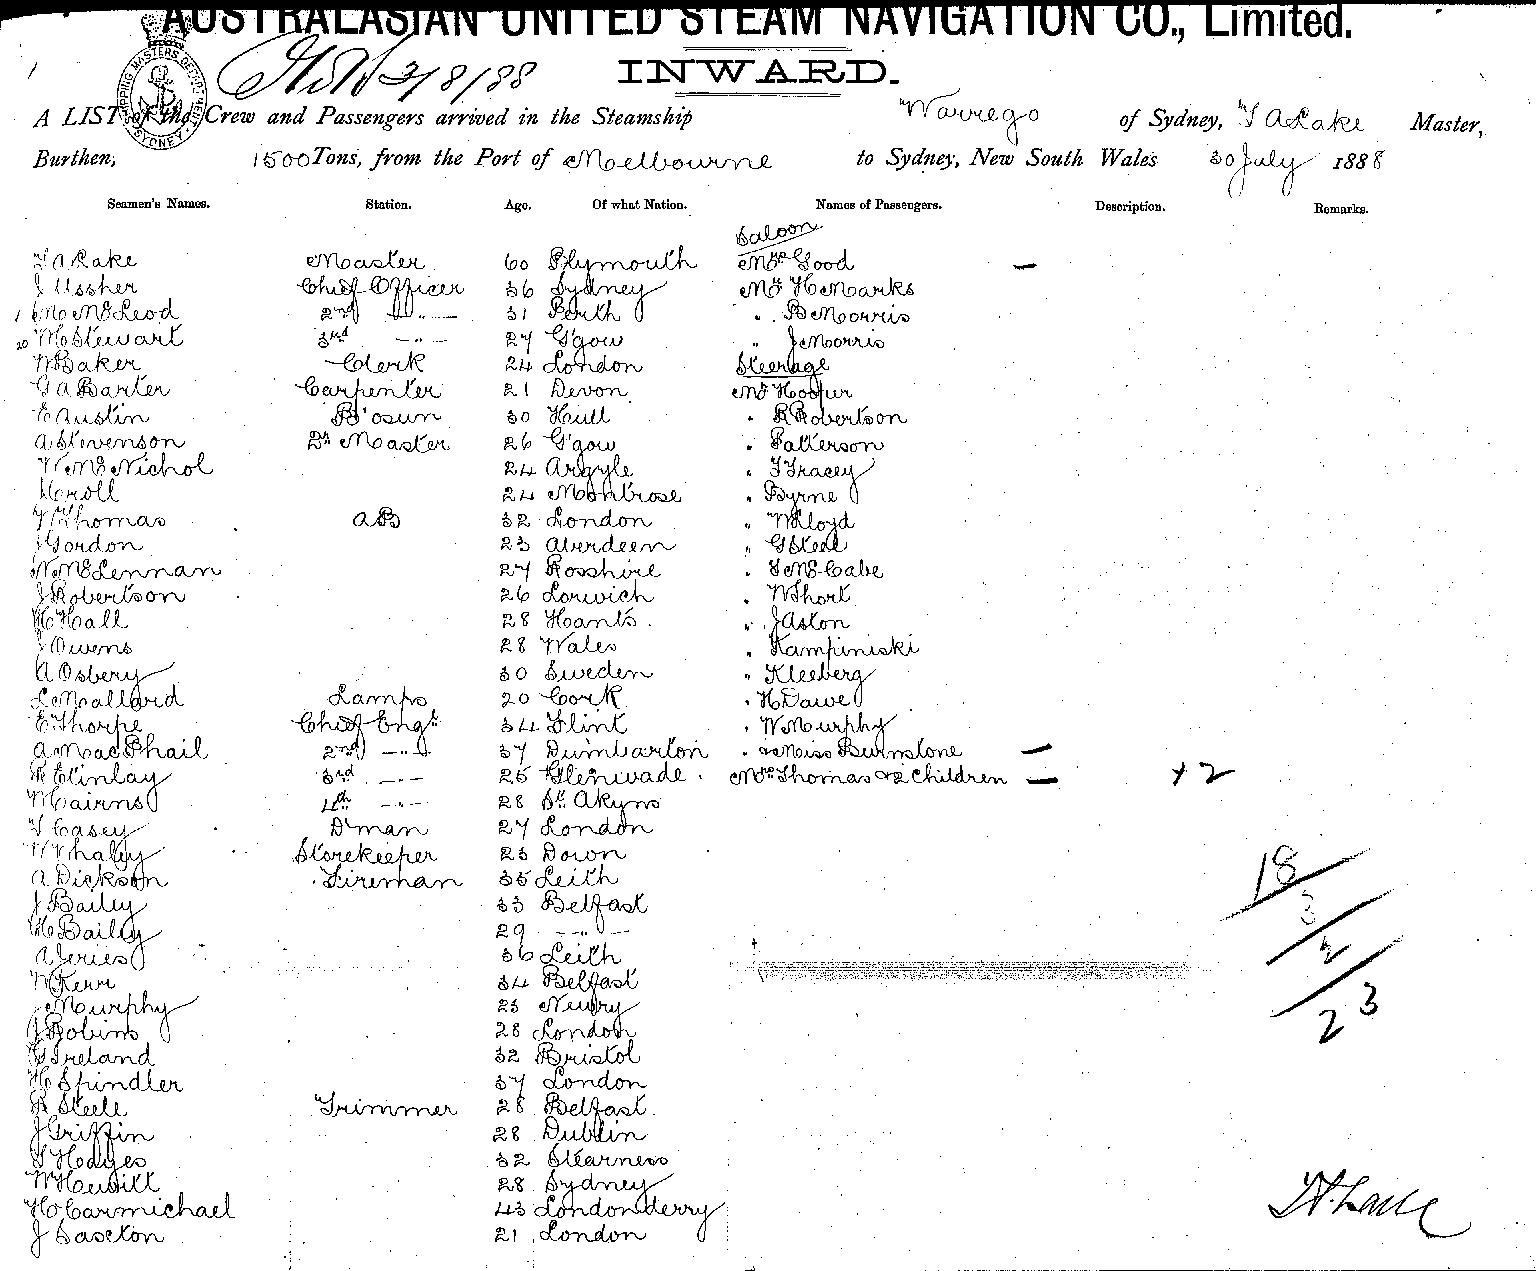 AUSTRALASIAN UNITED STEAM NAVIGATION CO., Limited.
2/8/88
INWARD.
SHIPPING MASTERS DEPARTMENT SYDNEY
A LIST of the Crew and Passengers arrived in the Steamship Warrego of Sydney, T A Lake Master,
Burthen, 1500 Tons, from the Port of Melbourne to Sydney, New South Wales 30 July 1888
Seamen's Names. Station. Age. Of what Nation. Names of Passengers. Description. Remarks.
Saloon
T A Lake Master 60 Plymouth Mrs Good —
J Ussher Chief Officer 36 Sydney Mr H Marks
1 M McLeod 2nd " 31 Perth " B Morris
20 M Stewart 3rd " 27 G'gow " J Morris
W Baker Clerk 24 London Steerage
G A Barter Carpenter 21 Devon Mr Hooper
E Austin B'osun 30 Hull " R Robertson
A Stevenson Qr Master 26 G'gow " Patterson
W McNichol 24 Argyle " T Tracey
H Croll 24 Montrose " Byrne
W Thomas AB 32 London " W Lloyd
J Gordon 23 Aberdeen " G Steel
N McLennan 27 Rosshire " T McCabe
J Robertson 26 Lorwich " W Short
H Hall 28 Hants " J Aston
J Owens 28 Wales " Kampiniski
A Osbery 30 Sweden " Kleeberg
L Mallard Lamps 20 Cork " H Dawe
E Thorpe Chief Engr 34 Flint " W Murphy
A MacPhail 2nd " 37 Dumbarton " & Miss Burnstone —
R E Kinlay 3rd " 25 Glenwade Mrs Thomas & 2 Children — + 2
M Cairns 4th " 28 St Akyns
T Casey D'man 27 London
W Whaley Storekeeper 23 Down
A Dickson Fireman 35 Leith
J Bailey 33 Belfast
H Bailey 29 "
A Jeries 36 Leith
W Kerr 34 Belfast
Murphy 23 Newry
J Robins 28 London
G Ireland 32 Bristol
H Spindler 37 London
R Steele Trimmer 28 Belfast
J Griffin 28 Dublin
T Hayes 32 Stearness
W Hewitt 28 Sydney
H Carmichael 43 Londonderry
J Saxton 21 London
18
3
2
23
T A Lake